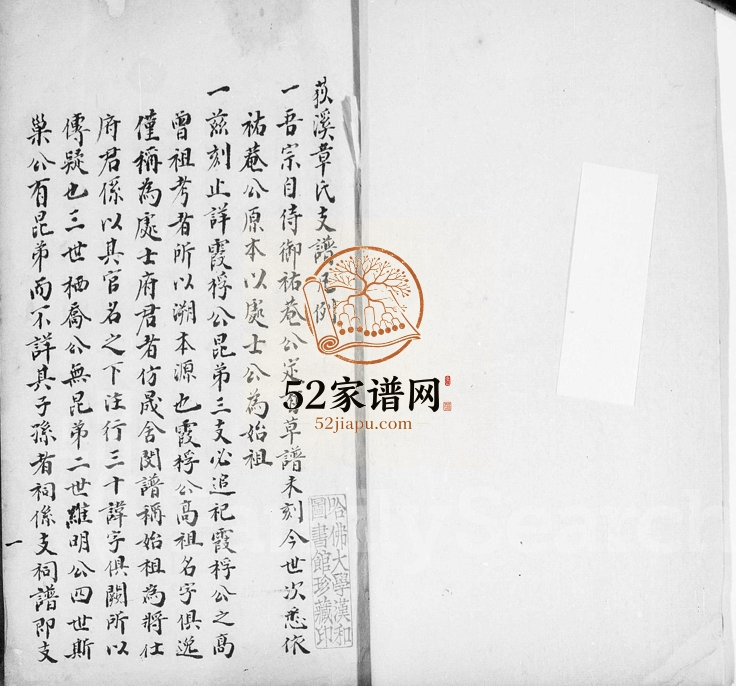 荻溪章氏支譜 例
一吾宗自侍御祐菴公定有草譜未刻今世次悉依
祐菴公原本以處士公為始祖
一茲刻止詳霞稃公昆弟三支必追祀霞稃公之高
曾祖考者所以溯本源也霞稃公高祖名字俱逸
僅稱為處士府君者仿晟舍閔譜稱始祖為將仕
府君係以其官名之下注行三十諱字俱闕所以
傳疑也三世栖喬公無昆弟二世維明公四世斯
巢公有昆弟而不詳其子孫者祠係支祠譜即支
一
哈佛大學漢和
圖書館珍藏印
52家谱网
52jiapu.com